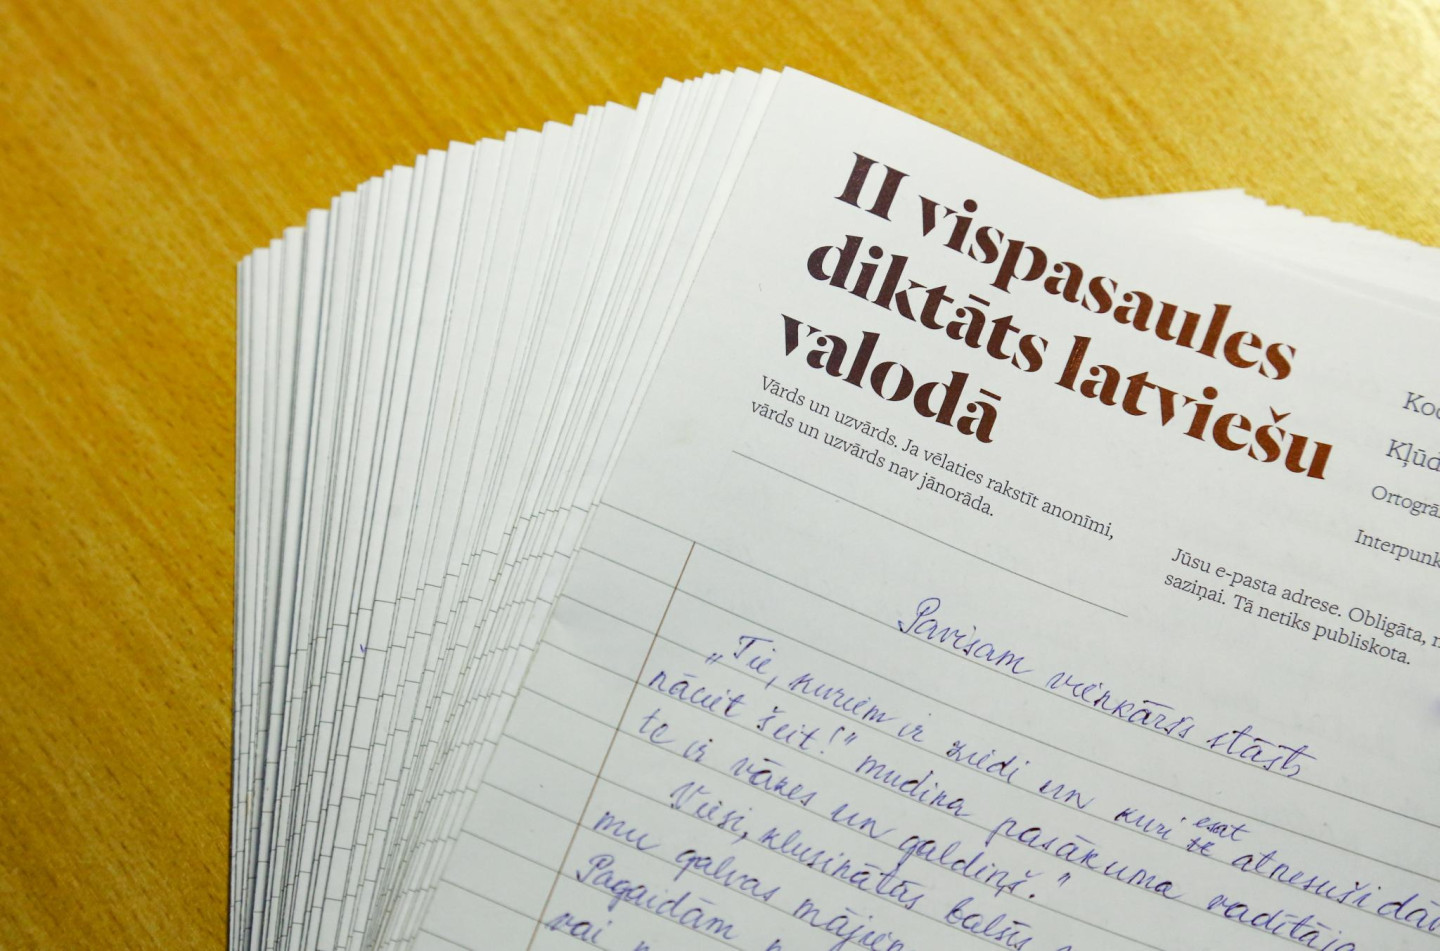 II vispasaules
diktāts latviešu
valodā
Vārds un uzvārds. Ja vēlaties rakstīt anonīmi,
vārds un uzvārds nav jānorāda.
Jūsu e-pasta adrese. Obligāta,
saziņai. Tā netiks publiskota.
Pavisam vienkāršs stāsts
„Tie, kuriem ir ziedi un kuri esat atnesuši
nāciet šeit!” mudina pasākuma vadītāja
te ir vāzes un galdiņš.”
Viesi, klusinātās balsīs
mu galvas mājien
Pagaidām
vai